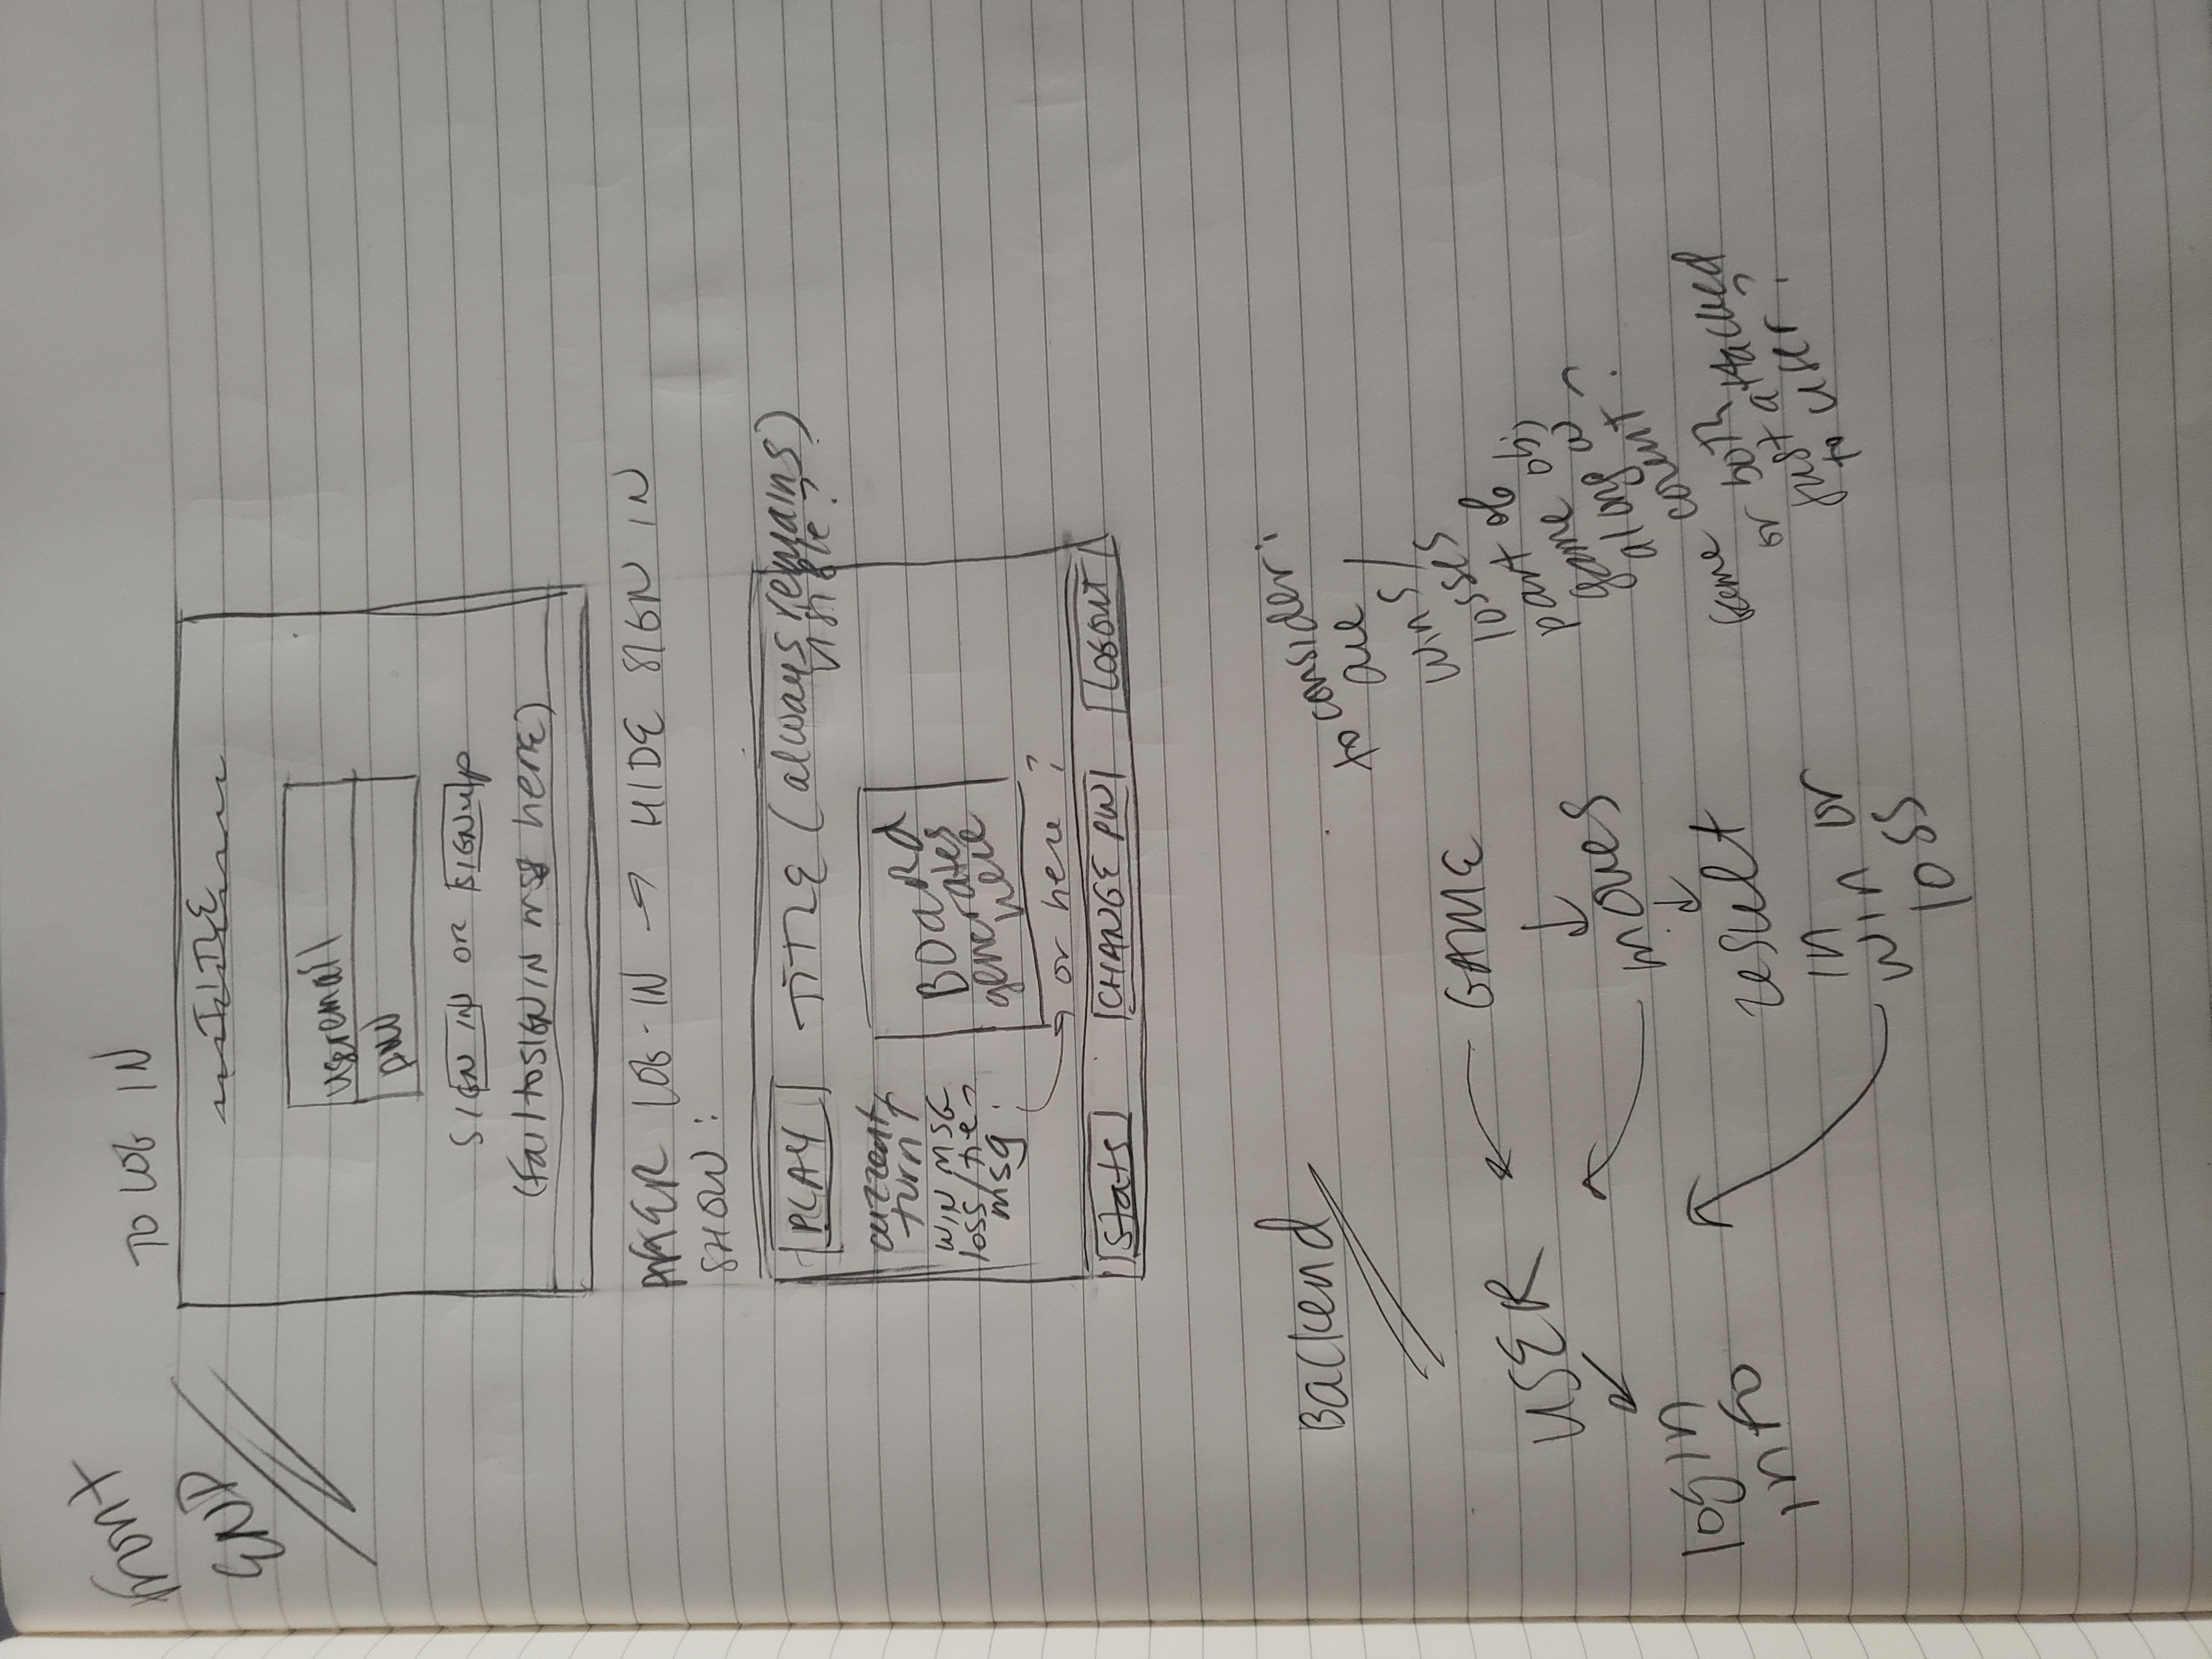 Front
END
TO LOG IN
TITLE
useremail
pw
SIGN IN OR SIGNup
(Fail to SIGN IN msg here)
AFTER LOG-IN → HIDE SIGN IN
SHOW:
PLAY TITLE (always remains
visible?
current
turn?
WIN MSG
loss/tie
msg
BOARD
generates
here
→ or here?
Stats CHANGE PW LOGOUT
Backend
USER
login
info
GAME
moves
result
in
win or
loss
to consider:
are
wins/
losses
part of
game obj
along w
game count?
or both
just attached
to user?